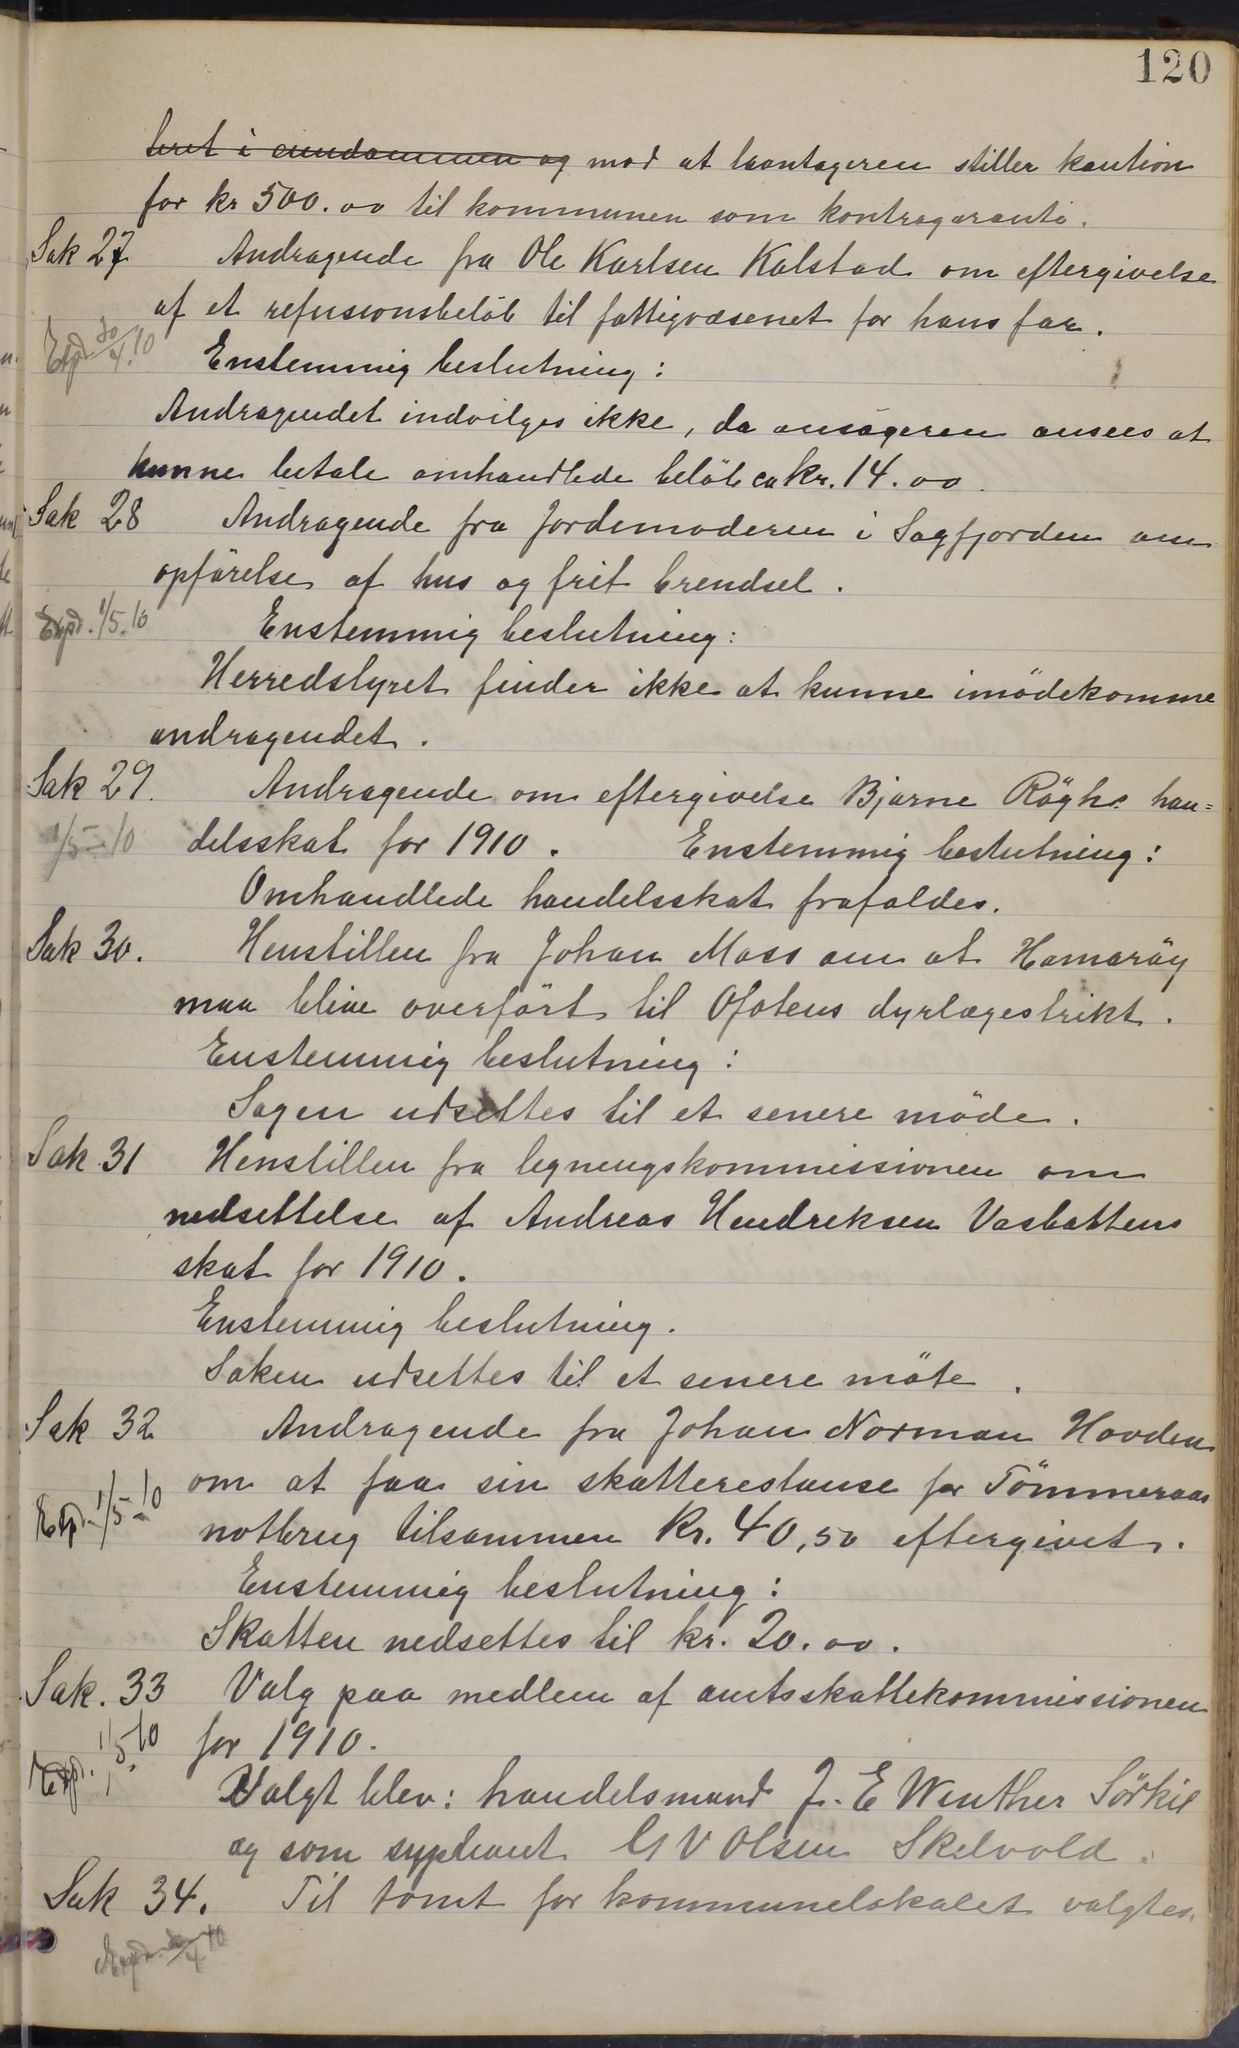 120
mod at laantageren stiller kaution
for kr 500.00 til kommunen som kontragaranti.
Sak 27 Andragende fra Ole Karlsen Kalstad om eftergivelse
af et refusionsbelöb til fattigvæsenet for hans far.
Exp. 30/4.10 Enstemmig beslutning:
Andragendet indvilges ikke, da ansögeren ansees at
kunne betale omhandlede belöb ca kr. 14.00
Sak 28 Andragende fra Jordemoderen i Sagfjorden om
opförelse af hus og frit brendsel.
Expd. 1/5.10 Enstemmig beslutning:
Herredstyret finder ikke at kunne imödekomme
andragendet.
Sak 29. Andragende om eftergivelse Bjarne Röghs han=
1/5-10 delsskat for 1910. Enstemmig beslutning:
Omhandlede handelsskat frafaldes.
Sak 30. Henstillen fra Johan Moss om at Hamaröy
maa blive overfört til Ofotens dyrlægestrikt.
Enstemmig beslutning:
Sagen udsettes til et senere möde.
Sak 31 Henstillen fra legningskommissionen om
nedsettelse af Andreas Hendriksen Vasbattens
skat for 1910.
Enstemmig beslutning.
Saken udsettes til et senere möte.
Sak 32 Andragende fra Johan Norman Hovden
om at faa sin skatterestanse for Tömmeraas
Exp. 1/5-10 notbrug tilsammen Kr. 40,50 eftergivet.
Enstemmig beslutning:
Skatten nedsettes til kr. 20.00.
Sak. 33 Valg paa medlem af amtsskattekommissionen
1/5.10 for 1910.
Exp. Valgt blev: handelsmand J. E Winther Sörkil
og som supleant G V Olsen Skelvold.
Sak 34. Til tomt for kommunelokalet valgtes
Expd. 30/4 10